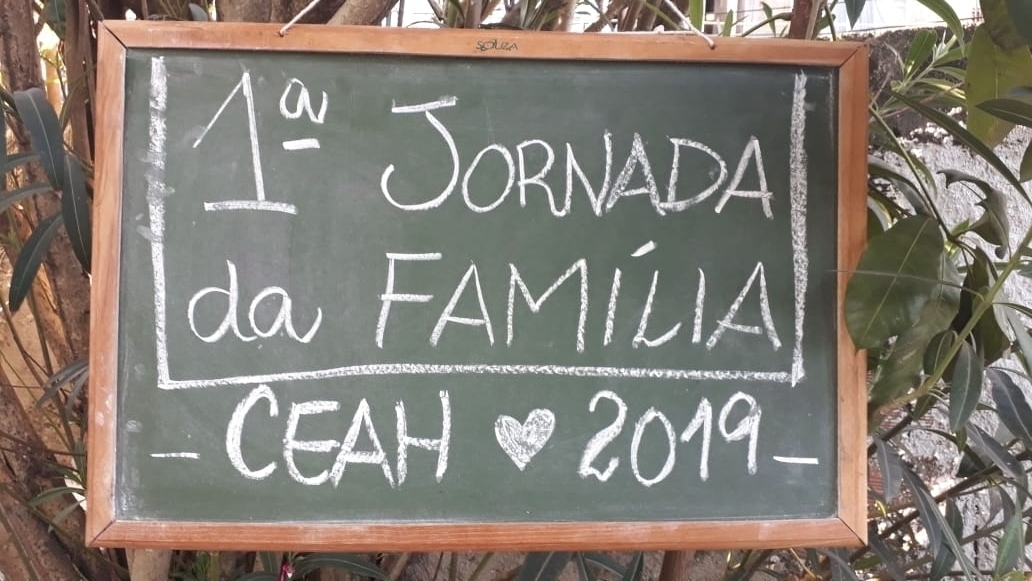 SOUZA
1ª JORNADA
da FAMÍLIA
CEAH ♥ 2019